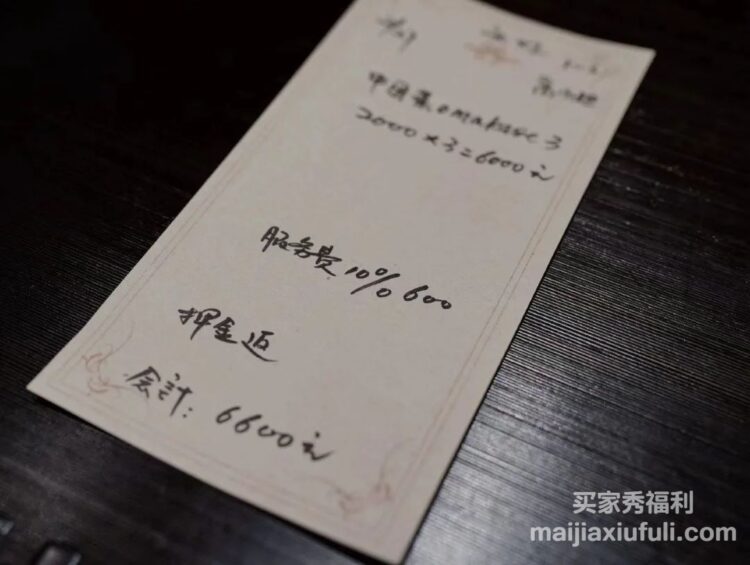 中国蒸omakase 3
2000×3=6000元
服务费10% 600
押金返
会計：6600元
买家秀福利
maijiaxiufuli.com